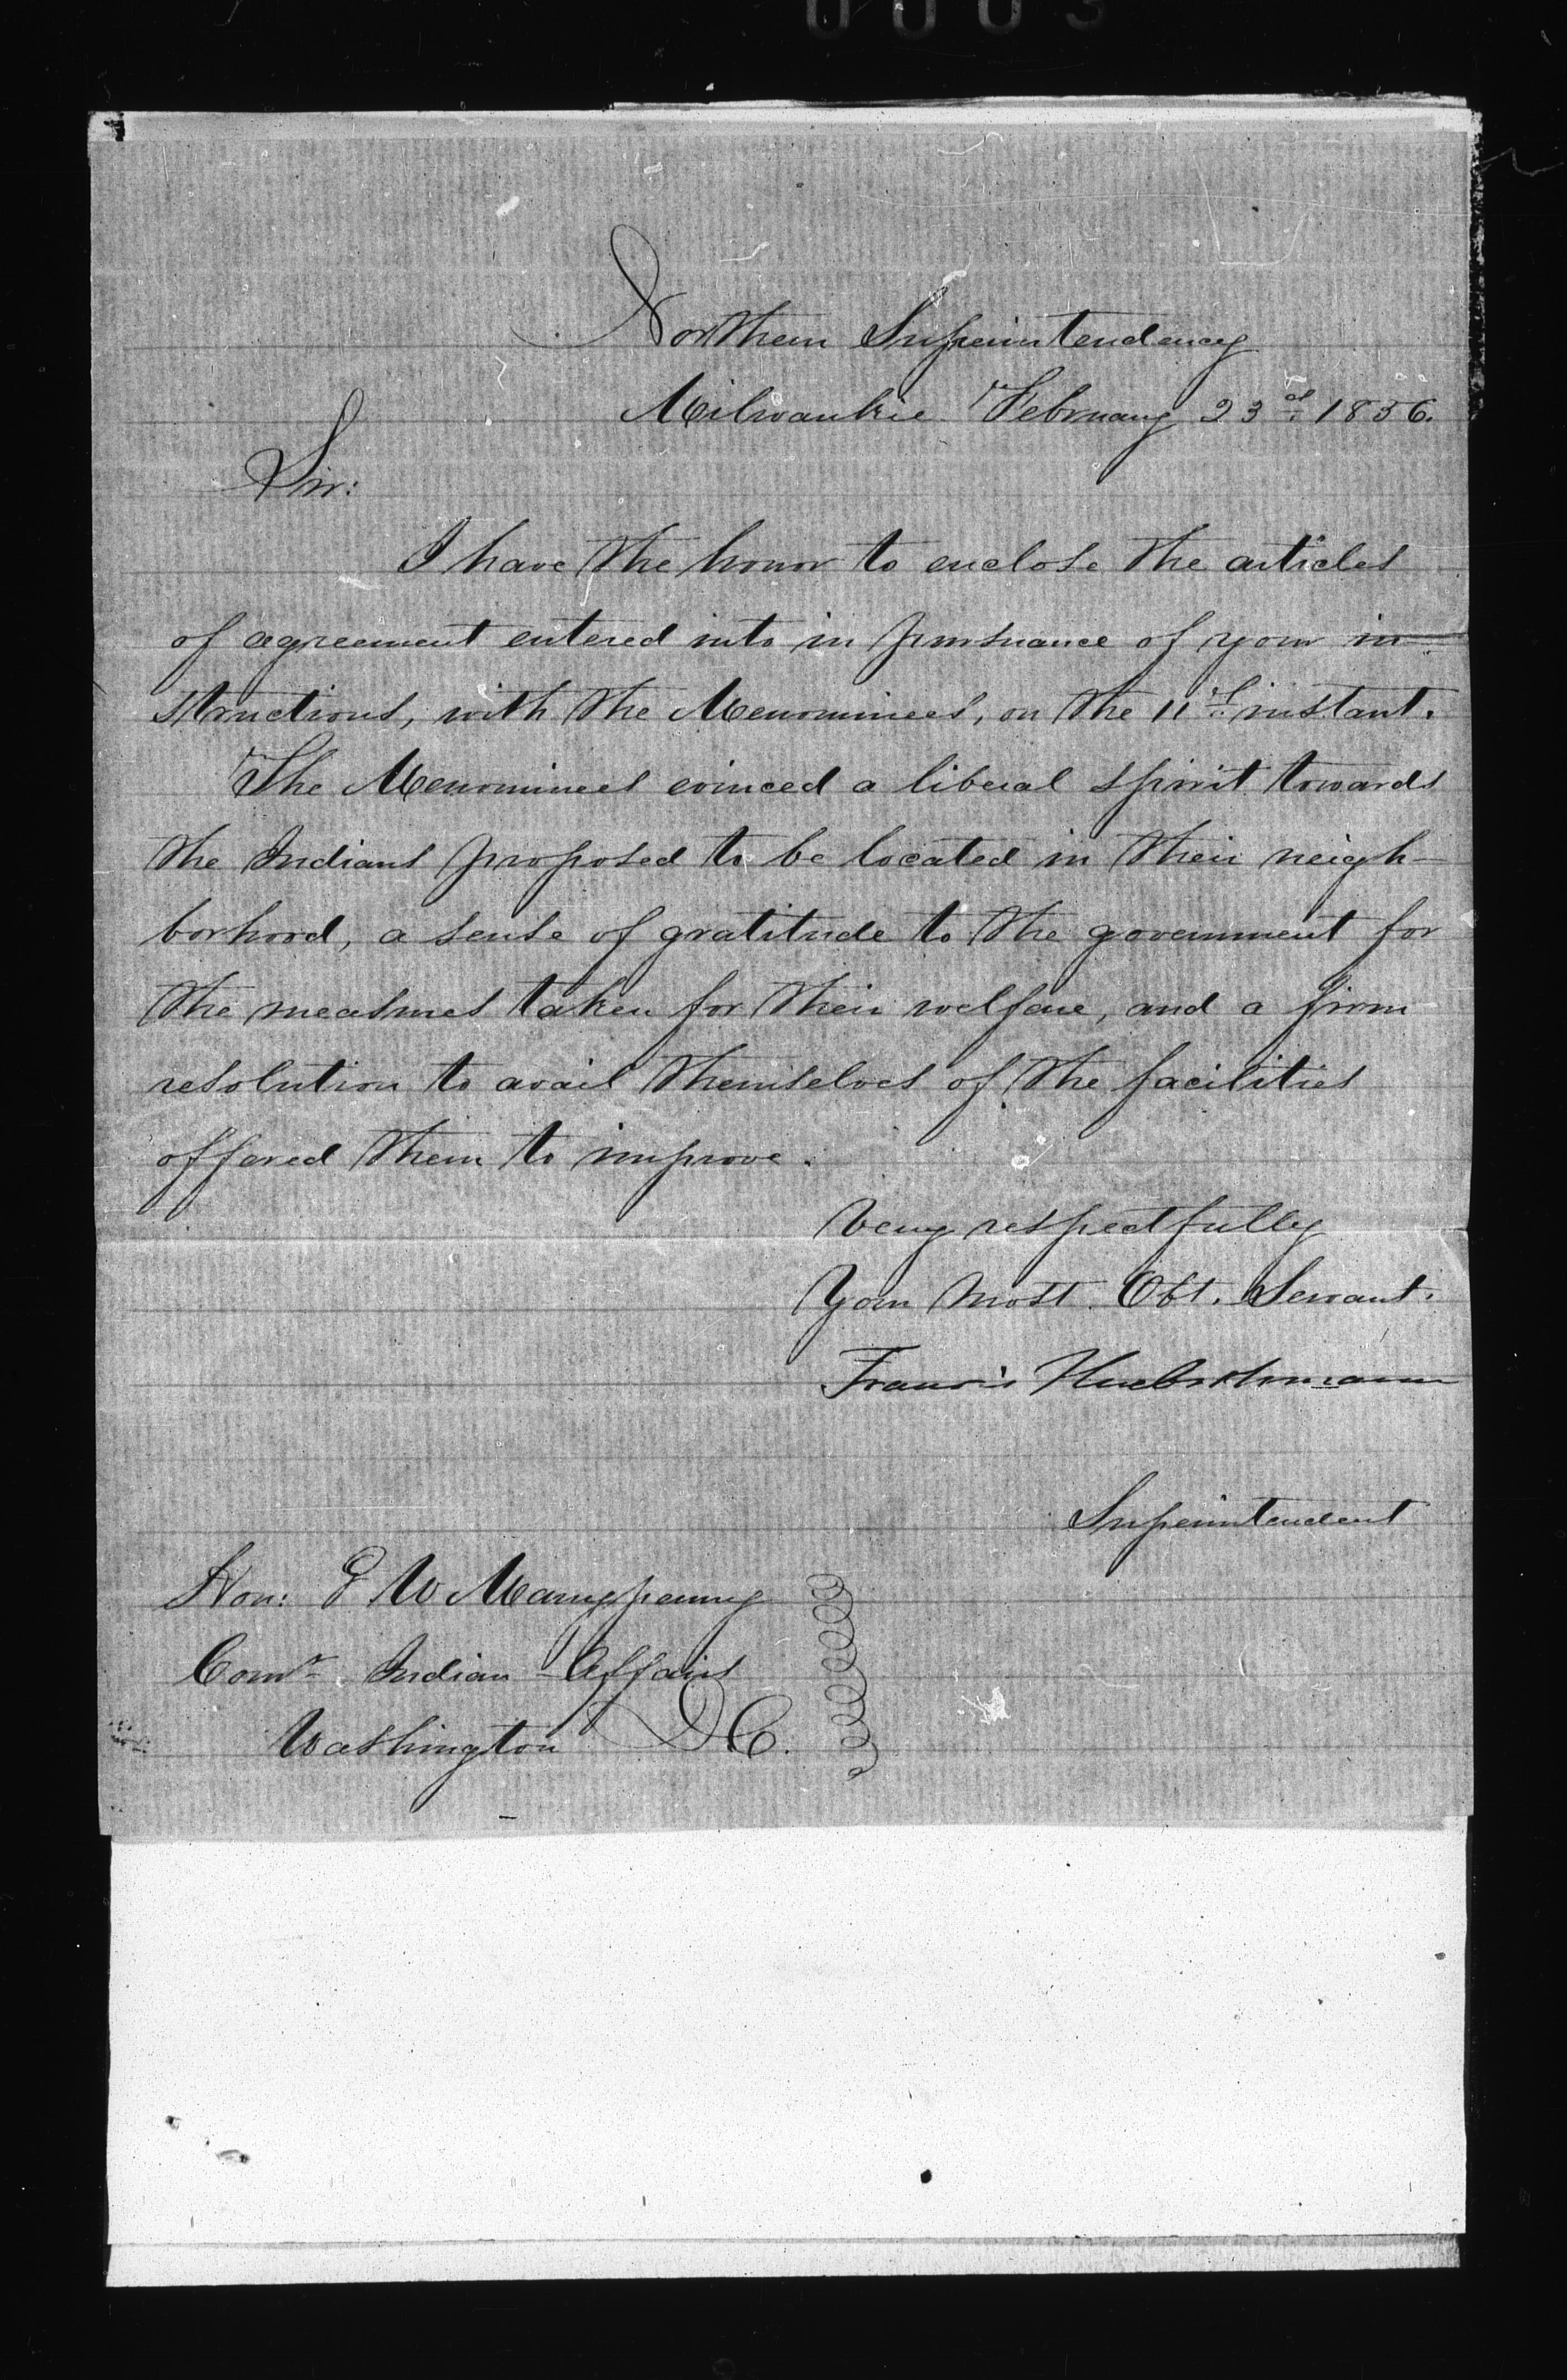 0003
Northern Superintendency
Milwaukie February 23d 1856.
Sir:
I have the honor to enclose the articles
of agreement entered into in pursuance of your in-
structions, with the Menominees, on the 11th instant.
The Menominees evinced a liberal spirit towards
the Indians proposed to be located in their neigh-
borhood, a sense of gratitude to the government for
the measures taken for their welfare, and a firm
resolution to avail themselves of the facilities
offered them to improve.
Very respectfully
Your most Obt. Servant.
Francis Huebschmann
Superintendent
Hon: G W Manypenny
Comr Indian Affairs
Washington D.C.